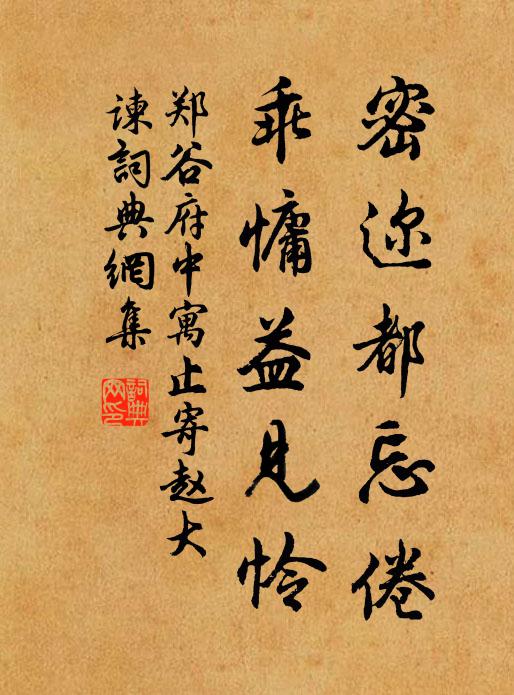 密迩都忘倦
乖慵益见怜
郑谷府中寓止寄赵大
谏詞典網集
詞典
网印